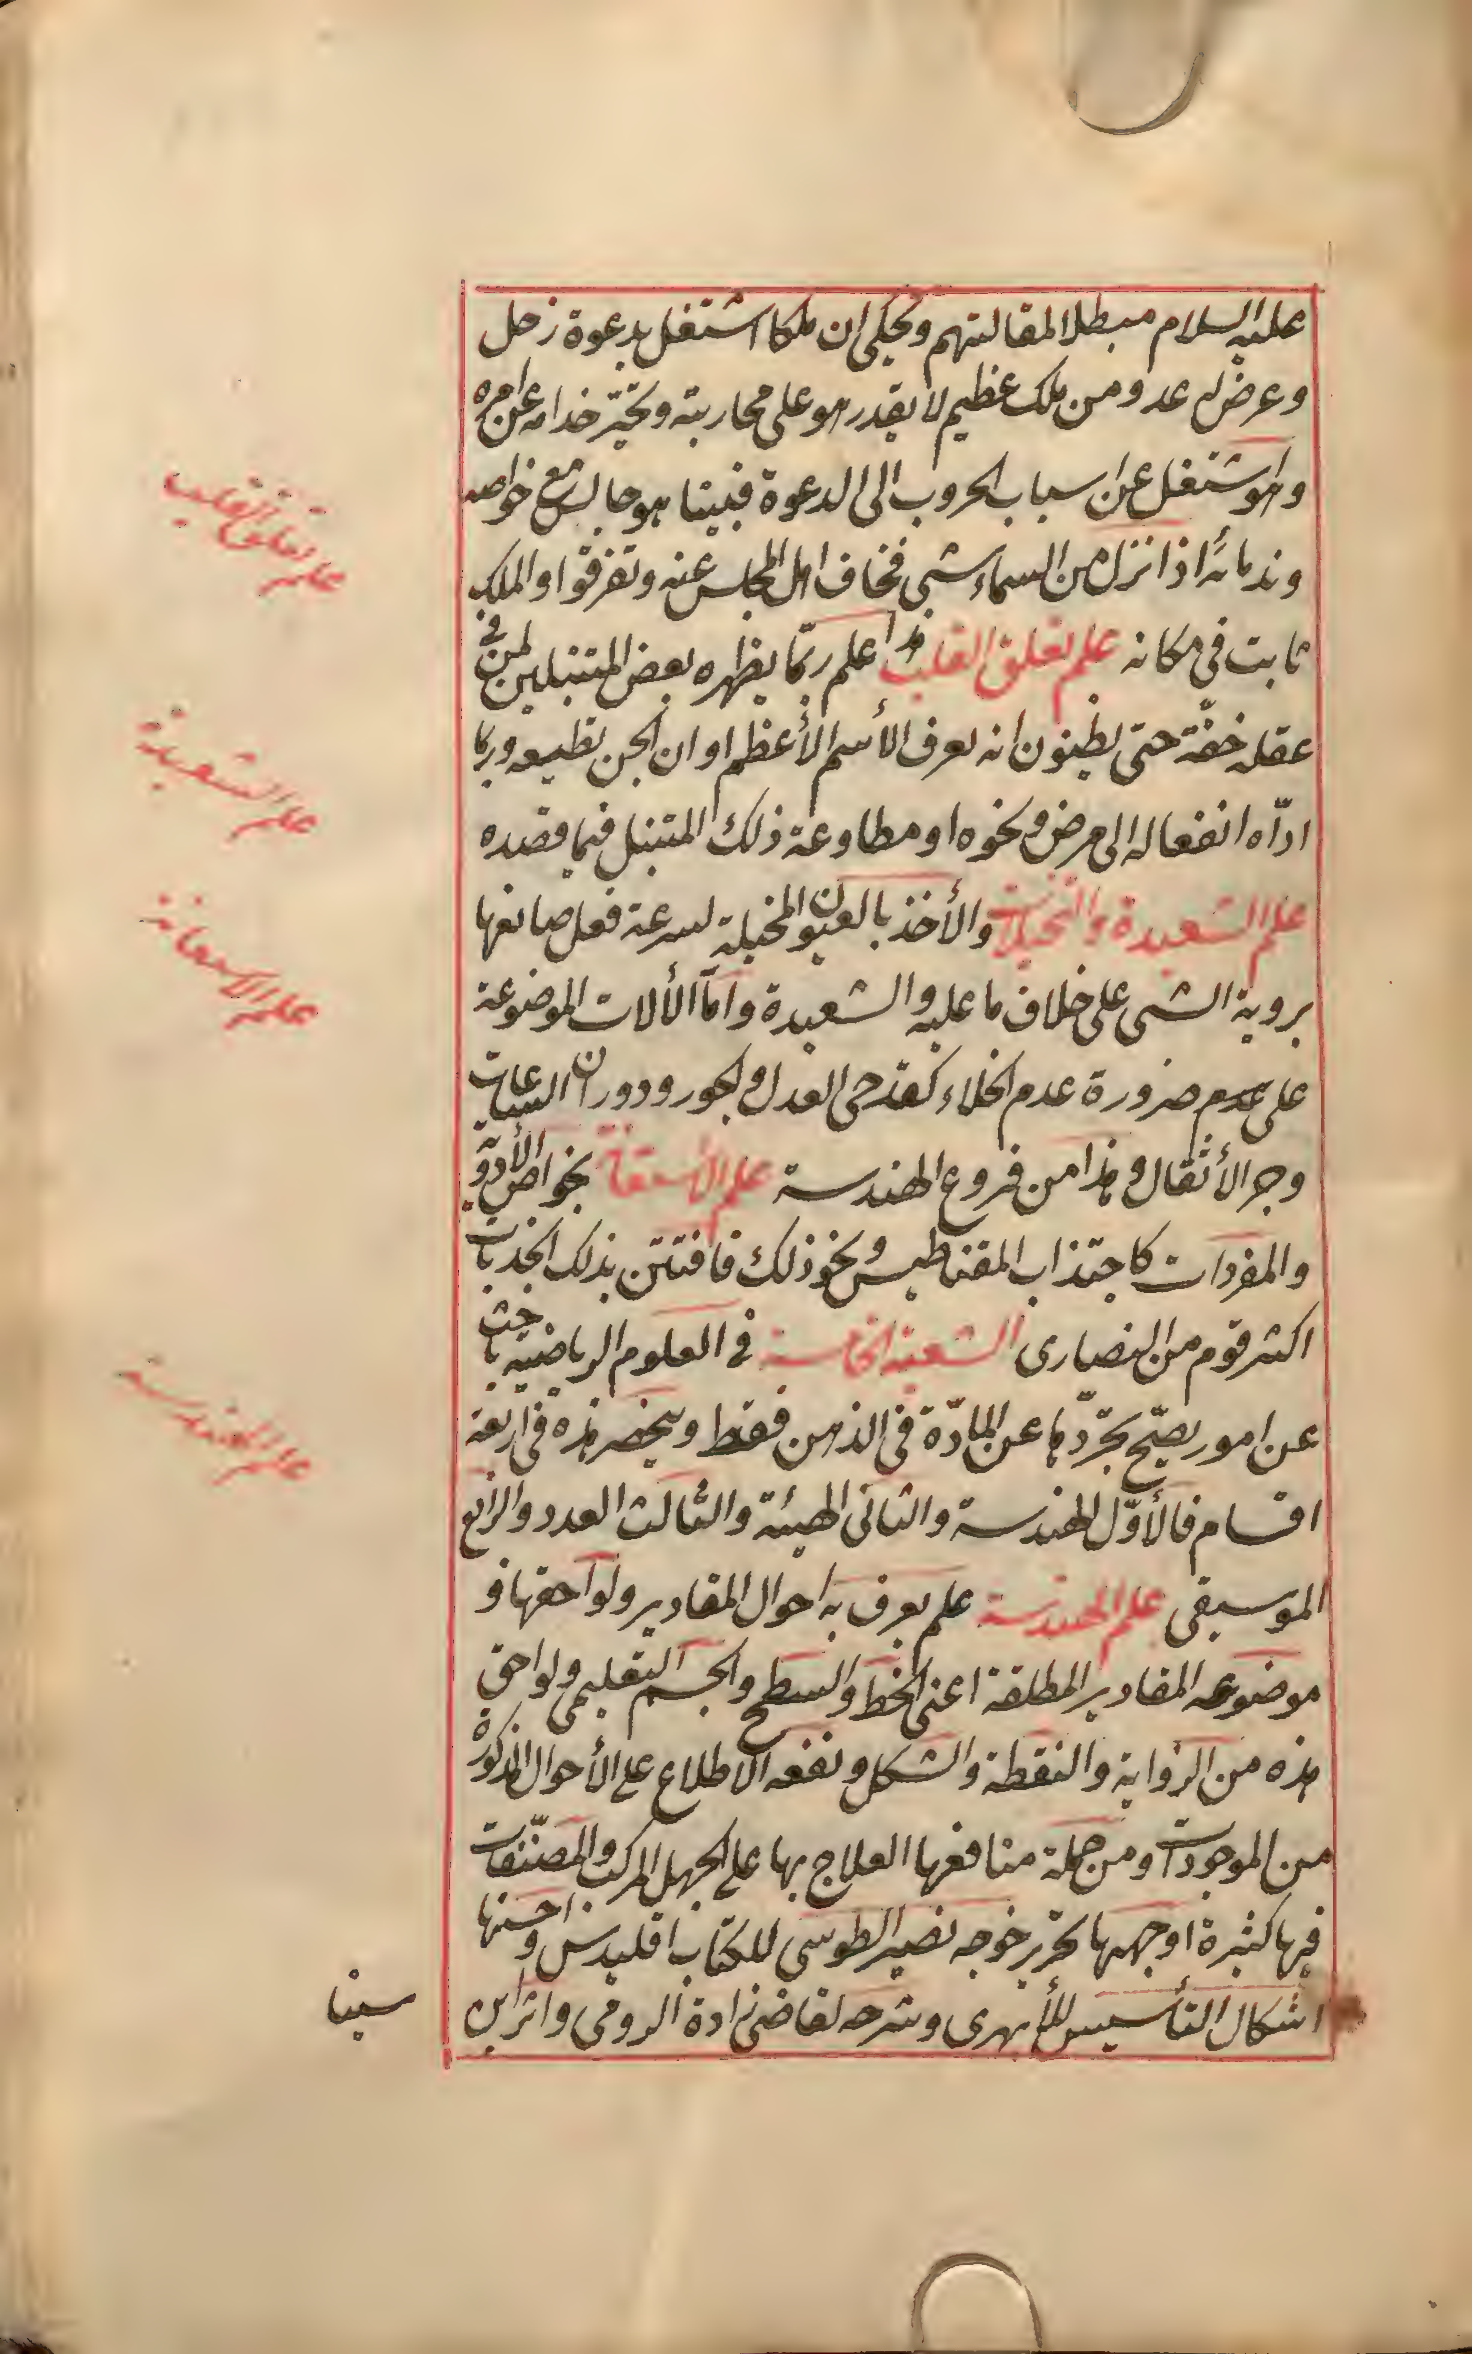 عليه السلام مبطلا لمقالتهم ويحكى ان ملكا اشتغل بدعوة زحل
وعرض له عدو من ملك عظيم لا يقدر هو على محاربته وتحيّر خدامه عن امره
وهو اشتغل عن اسباب الحروب الى الدعوة فبينا هو جالس مع خواصه
وندمائه اذا نزل من السماء شئ فخاف اهل المجلس عنه وتفرقوا والملك
ثابت في مكانه علم تعلق القلب هذا علم ربّما يظهره بعض المتنبلين لمن في
عقله خفّة حتى يظنون انه يعرف الأسم الأعظم او ان الجن تطيعه وربما
ادّاه انفعاله الى مرض ونحوه او مطاوعة ذلك المتنبل فيما قصده
علم الشعبدة والتخيلات والأخذ بالعيون المخيلة لسرعة فعل صانعها
بروية الشئ على خلاف ما عليه والشعبدة وامّا الألات الموضوعة
على عدم ضرورة عدم الخلاء كقدحى العدل والجور ودوران الساعات
وجر الأثقال وهذا من فروع الهندسة علم الأستعانة بخواص الأدوية
والمفردات كاجتذاب المقناطيس ونحو ذلك فافتتن بذلك الجذبات
اكثر قوم من النصارى الشعبة الخامسة في العلوم الرياضية باحث
عن امور يصحّ تجرّدها عن المادّة في الذهن فقط وينحصر هذه في اربعة
اقسام فالأوّل الهندسة والثانى الهيئة والثالث العدد والرابع
الموسيقى علم الهندسة علم يعرف به احوال المقادير ولواحقها و
موضوعه المقادير المطلقة اعنى الخط والسطح والجسم التعليمى ولواحق
هذه من الزواية والنقطة والشكل ونفعه الاطلاع على الأحوال المذكورة
من الموجودات ومن جملة منافعها العلاج بها على الجهل المركب والمصنّفات
فيها كثيرة اوجهها تحرير خوجه نصير الطوسى للكتاب اقليدس واحسنها
اشكال التأسيس للأبهرى وشرحه لقاضى زادة الرومى واثر ابن
سينا
علم تعلق القلب
علم الشعبدة
علم الاستعانة
علم الهندسة